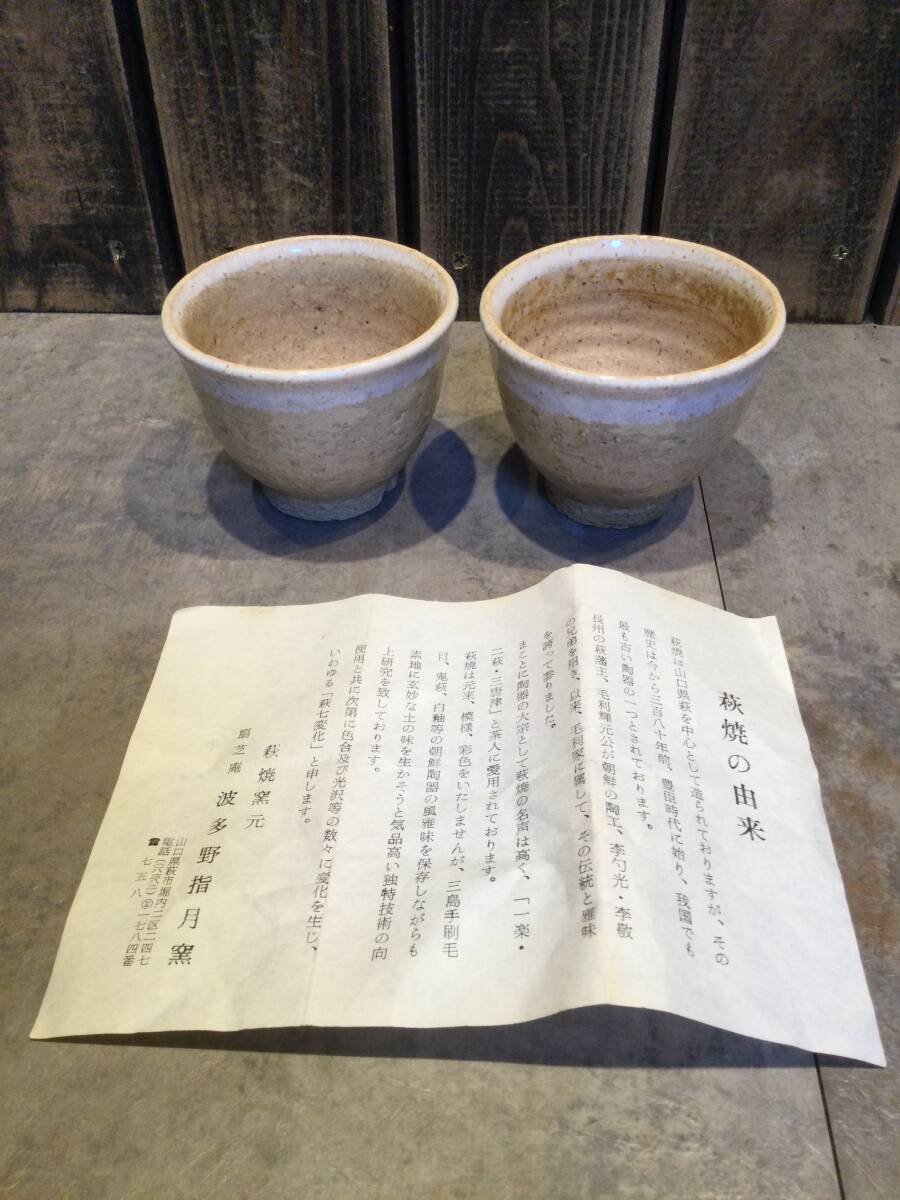 萩焼の由来
萩焼は山口県萩を中心として造られておりますが、その
歴史は今から三百八十年前、豊臣時代に始り、我国でも
最も古い陶器の一つとされております。
長州の萩藩主、毛利輝元公が朝鮮の陶工、李勺光・李敬
の兄弟を招き、以来、毛利家に属して、その伝統と雅味
を誇って参りました。
まことに陶器の大宗として萩焼の名声は高く、「一楽・
二萩・三唐津」と茶人に愛用されております。
萩焼は元来、模様、彩色をいたしませんが、三島手刷毛
目、鬼萩、白釉等の朝鮮陶器の風雅味を保存しながらも
素地に玄妙な土の味を生かそうと気品高い独特技術の向
上研究を致しております。
使用と共に次第に色合及び光沢等の数々に変化を生じ、
いわゆる「萩七変化」と申します。
萩焼窯元
扇芝庵 波多野指月窯
山口県萩市堀内二区二四七
七五八